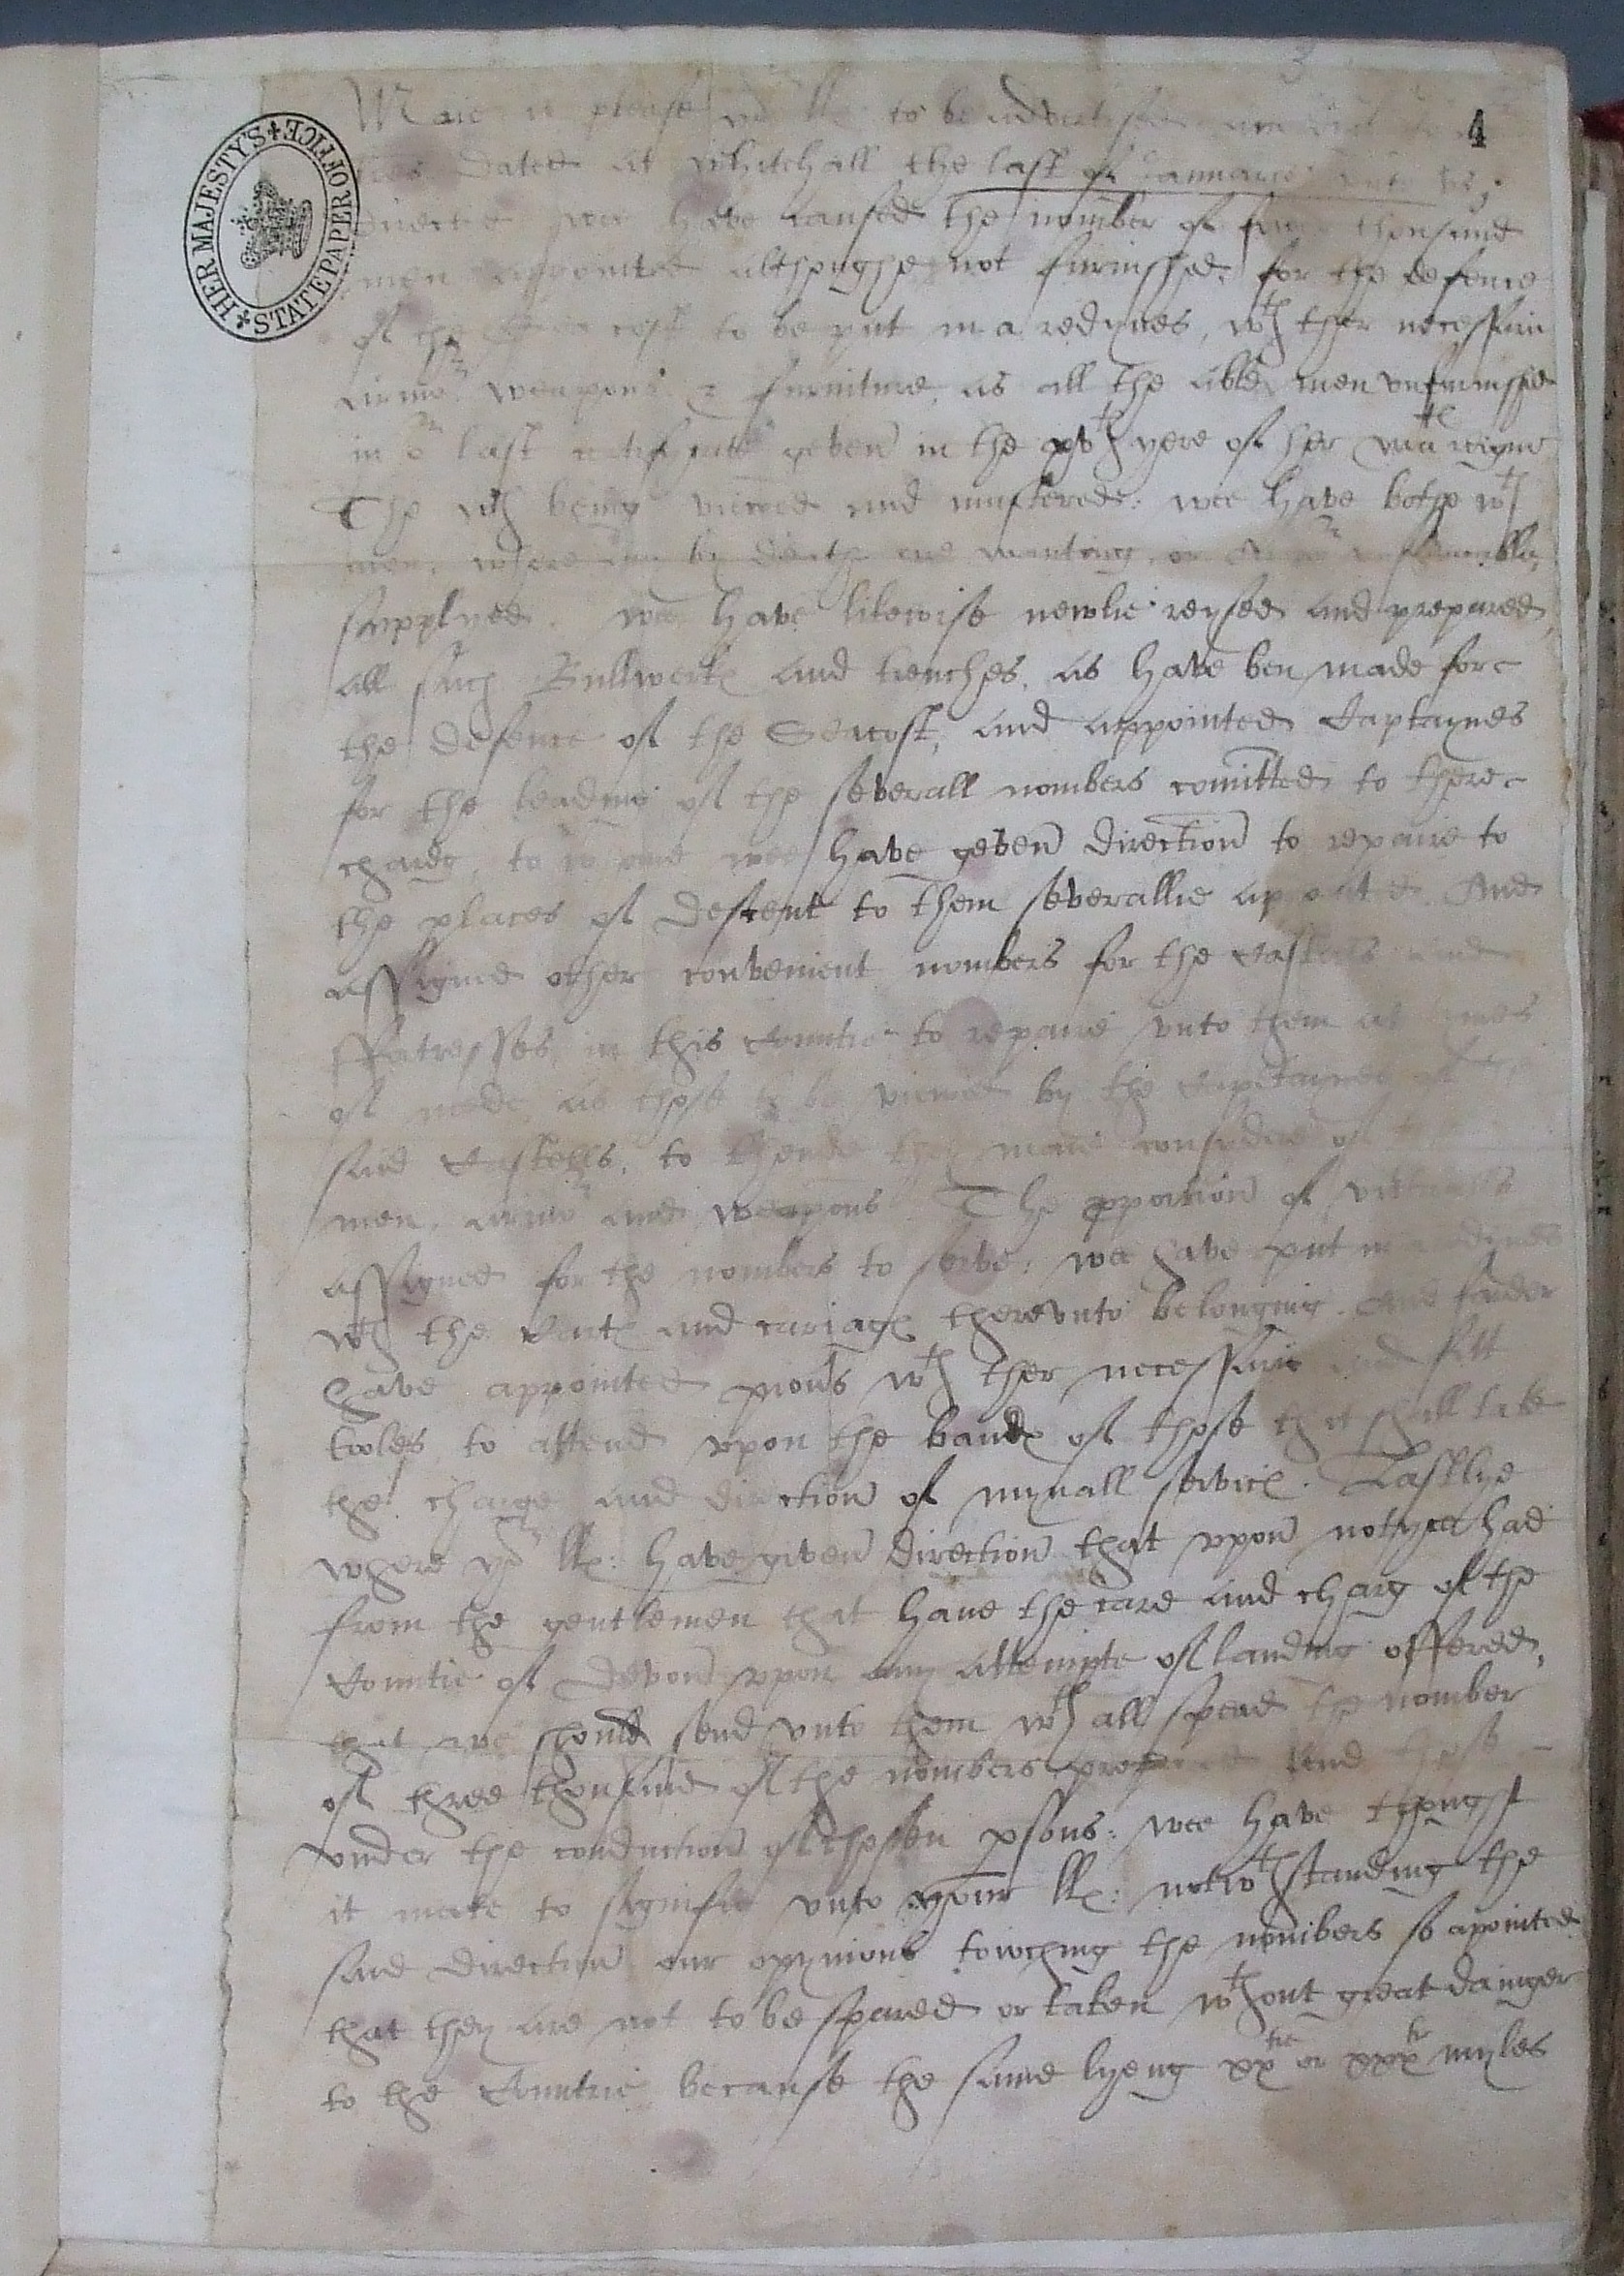 3
4
HER MAJESTY'S STATE PAPER OFFICE
Maie it please yor llx to be advertised
dated at Whitehall the last of Januarie unto us
directed wee have caused the nomber of thousand
men appointed althoughe not furnished for the defence
of the cost to be put in a redynes, wth ther necessarie
armor weapons & furniture, as all the able men unfurnished
in or last certificate geben in the xvth yere of her matie reigne
The wch being viewed and mustered: wee have bothe wth
men, where any by death are wanting, or Armor
supplyed. wee have likewise newlie reysed and prepared
all such Bullwerkx and trenches, as have ben made for
the defence of the Seacost, and appointed Captaynes
for the leading of the severall nombers comitted to there
charg, to whome wee have geben direction to repaire to
the places of descent to them severallie apointed. And
assigned other convenient nombers for the Castells and
ffortresses in this Countie to repaire unto them at times
of nede, as those to be viewed by the Captaynes of
said Castells, to thende they maie consyder of
men, armor and weapons The pportion of victualls
assigned for the nombers to serve: wee have put in redynes
wth the Cartx and cariagx thereunto belonging. And farder
have appointed pions wth ther necessarie and fitt
tooles to attend upon the bandx of those that shall take
the charge and direction of mynall service. Lastlye
where yor llx: have given direction that upon notyce had
from the gentlemen that haue the care and charg of the
Countie of Devon upon any attempte of landing offered,
that we should send unto them wth all spead the nomber
of three thousand of the nombers prepared and those
under the conduction of chosen psons: wee have thought
it mete to signifie unto your llx: notwthstanding the
said direction our opynions towching the nombers so apointed
that they are not to be spared or taken wthout great dainger
to the Countrie because the same lyeng xxtie or xxxtie myles